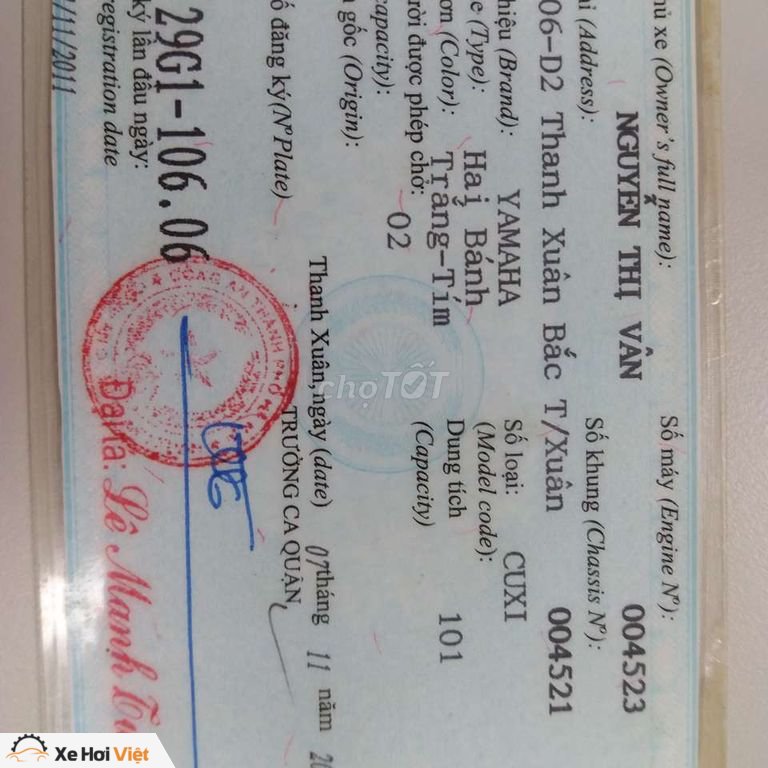 hủ xe (Owner's full name):
NGUYỄN THỊ VÂN
Số máy (Engine Nº):
004523
hỉ (Address):
06-D2 Thanh Xuân Bắc T/Xuân
Số khung (Chassis Nº):
004521
hiệu (Brand): YAMAHA
Số loại: CUXI
(Model code):
e (Type): Hai Bánh
Dung tích 101
(Capacity)
ơn (Color): Trắng-Tím
ười được phép chở: 02
capacity):
n gốc (Origin):
Thanh Xuân, ngày (date) 07 tháng 11 năm 20
TRƯỞNG CA QUẬN
ố đăng ký (Nº Plate)
29G1-106.06
Đại tá: Lê Mạnh
ký lần đầu ngày:
registration date
/11/2011
chợTỐT
Xe Hơi Việt